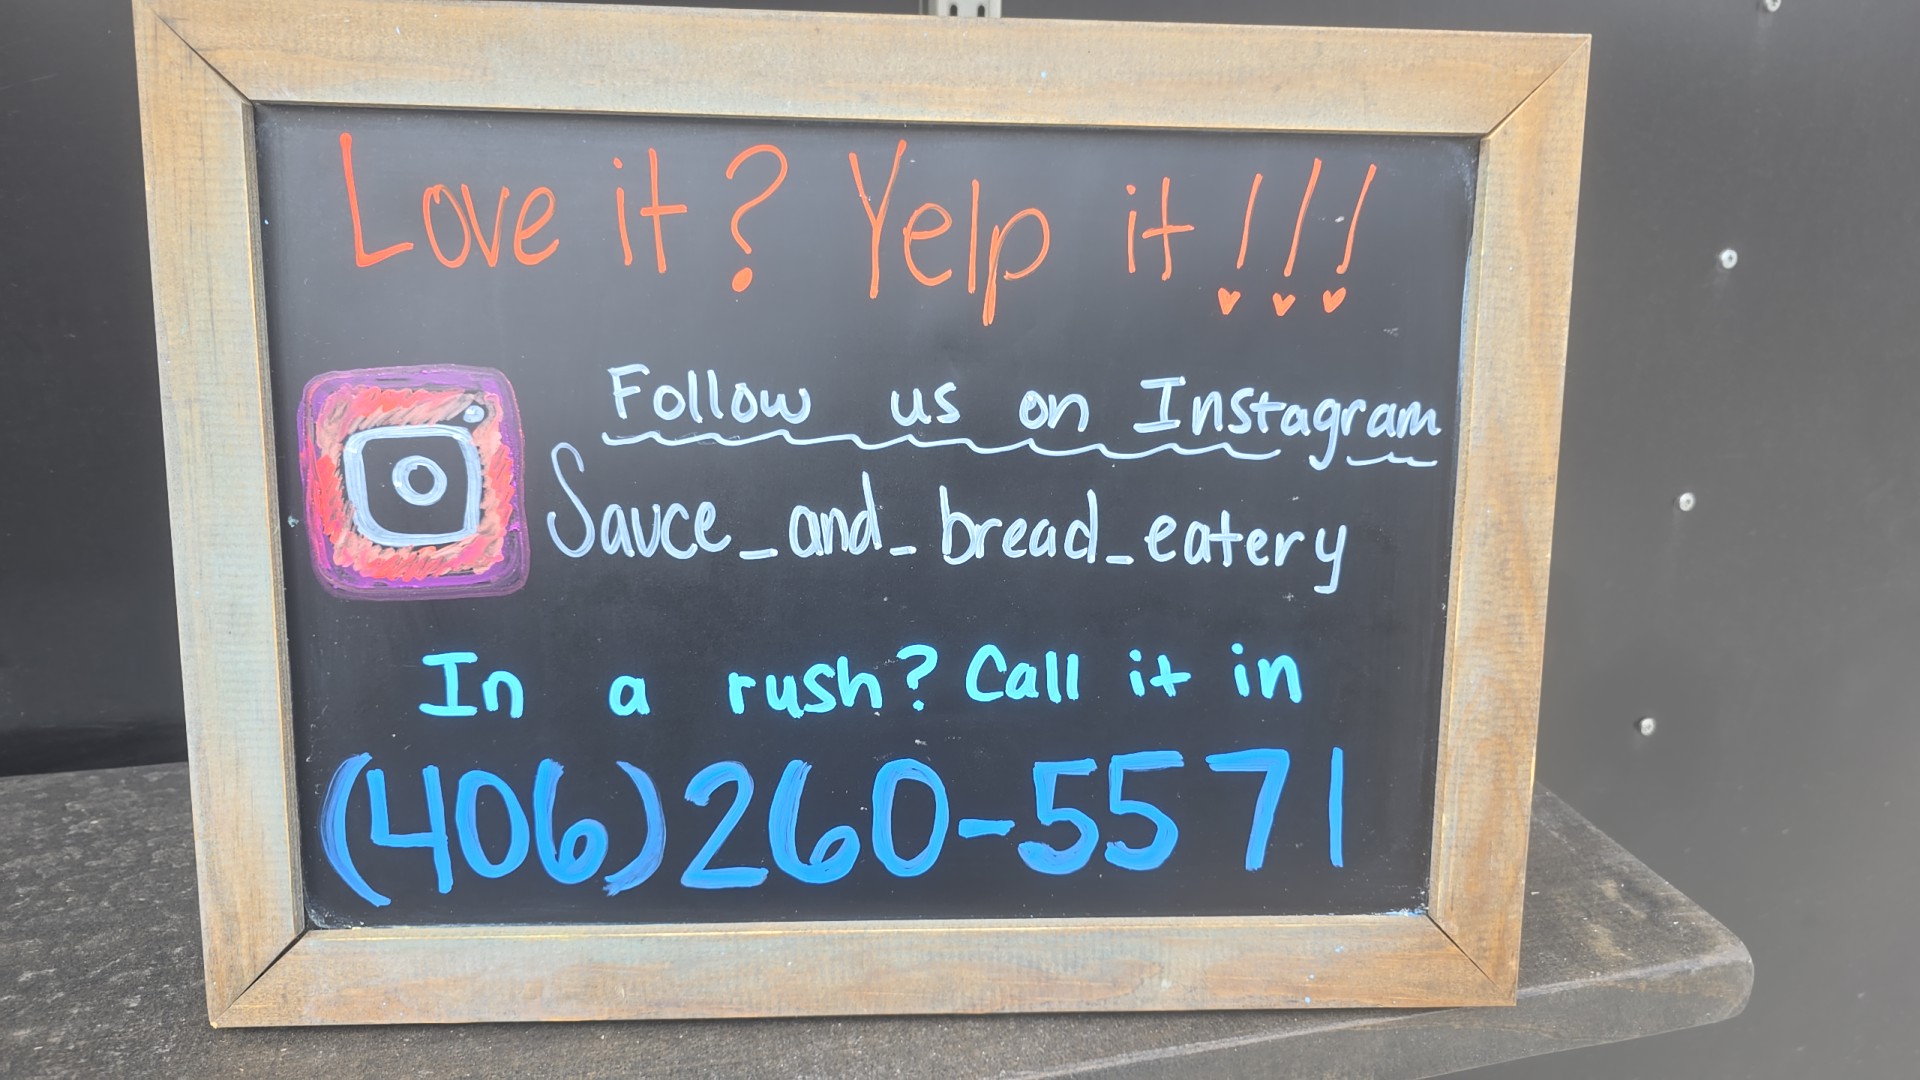 Love it? Yelp it!!!
Follow us on Instagram
Sauce_and_bread_eatery
In a rush? Call it in
(406)260-5571